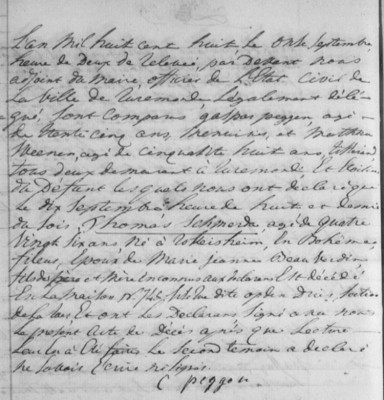 L'an Mil huit cent huit, le onze septembre
heure de Deux de relevée, par Devant nous
adjoint du Maire, officier de l'Etat Civil de
La Ville de Ruremonde Légalement délé-
gué, sont comparus gaspar peggen, agé
de trente cinq ans Menuisier, et Matthieu
agé de cinquante huit ans,
tous deux demeurant à Ruremonde, Et Voisins
du Defunt lesquels nous ont declaré que
le dix Septembre heure de huit et demie
du soir, Thomas Schmeda, agé de quatre
Vingt Six ans, né à En Boheme,
fileur, Epoux de Marie jeanne
fils de père et Mère Inconnus aux declarans Est décédé
En La Maison N. 745, dite op den Dries, section
de la Et ont les Declarans signé avec nous
le present Acte de Décès après que Lecture
Leur en a Eté faite, le second temoin a declaré
ne savoir Ecrire ni signer
C peggen